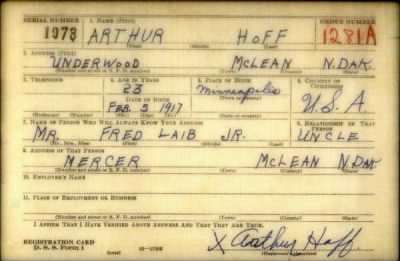 SERIAL NUMBER 1. NAME (Print) ORDER NUMBER
1973 ARTHUR HOFF 1281A
(First) (Middle) (Last)
2. ADDRESS (Print)
UNDERWOOD McLEAN N.DAK.
(Number and street or R. F. D. number) (Town) (County) (State)
3. TELEPHONE 4. AGE IN YEARS 5. PLACE OF BIRTH 6. COUNTRY OF CITIZENSHIP
23 Minneapolis
DATE OF BIRTH
FEB. 5 1917 U.S.A
7. NAME OF PERSON WHO WILL ALWAYS KNOW YOUR ADDRESS 8. RELATIONSHIP OF THAT PERSON
MR. FRED LAIB JR. UNCLE
(Mr., Mrs., Miss) (First) (Middle) (Last)
9. ADDRESS OF THAT PERSON
MERCER McLEAN N.DAK
(Number and street or R. F. D. number) (Town) (County) (State)
10. EMPLOYER'S NAME
11. PLACE OF EMPLOYMENT OR BUSINESS
(Number and street or R. F. D. number) (Town) (County) (State)
I AFFIRM THAT I HAVE VERIFIED ABOVE ANSWERS AND THAT THEY ARE TRUE.
REGISTRATION CARD
D. S. S. Form 1 X Arthur Hoff
(over)